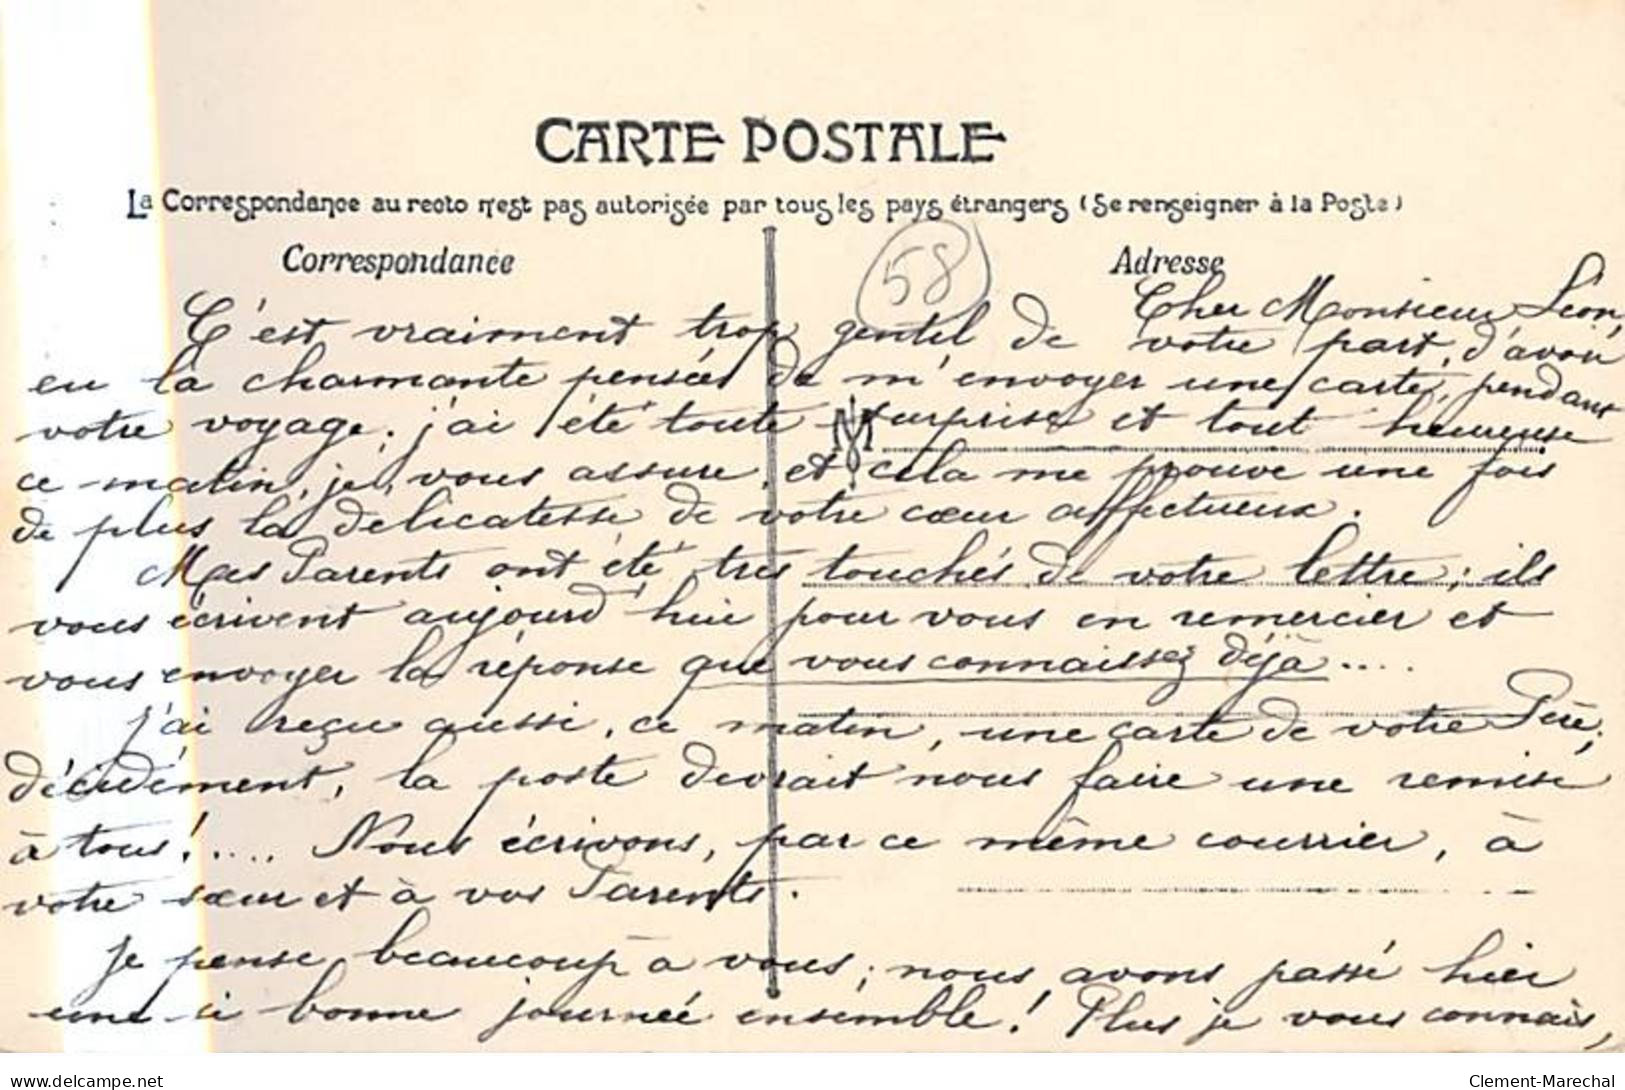 CARTE POSTALE
La Correspondance au recto n'est pas autorisée par tous les pays étrangers (Se renseigner à la Poste)
Correspondance
58
Adresse
Cher Monsieur Léon,
C'est vraiment trop gentil de votre part, d'avoir
eu la charmante pensée de m'envoyer une carte, pendant
votre voyage; j'ai été toute surprise et tout heureuse
M
ce matin, je vous assure, et cela me prouve une fois
de plus la délicatesse de votre cœur affectueux.
Mes Parents ont été très touchés de votre lettre; ils
vous écrivent aujourd'hui pour vous en remercier et
vous envoyer la réponse que vous connaissez déjà....
J'ai reçu aussi, ce matin, une carte de votre Père;
décidément, la poste devrait nous faire une remise
à tous!.... Nous écrivons, par ce même courrier, à
votre sœur et à vos Parents.
Je pense beaucoup à vous; nous avons passé hier
une si bonne journée ensemble! Plus je vous connais,
www.delcampe.net
Clement-Marechal